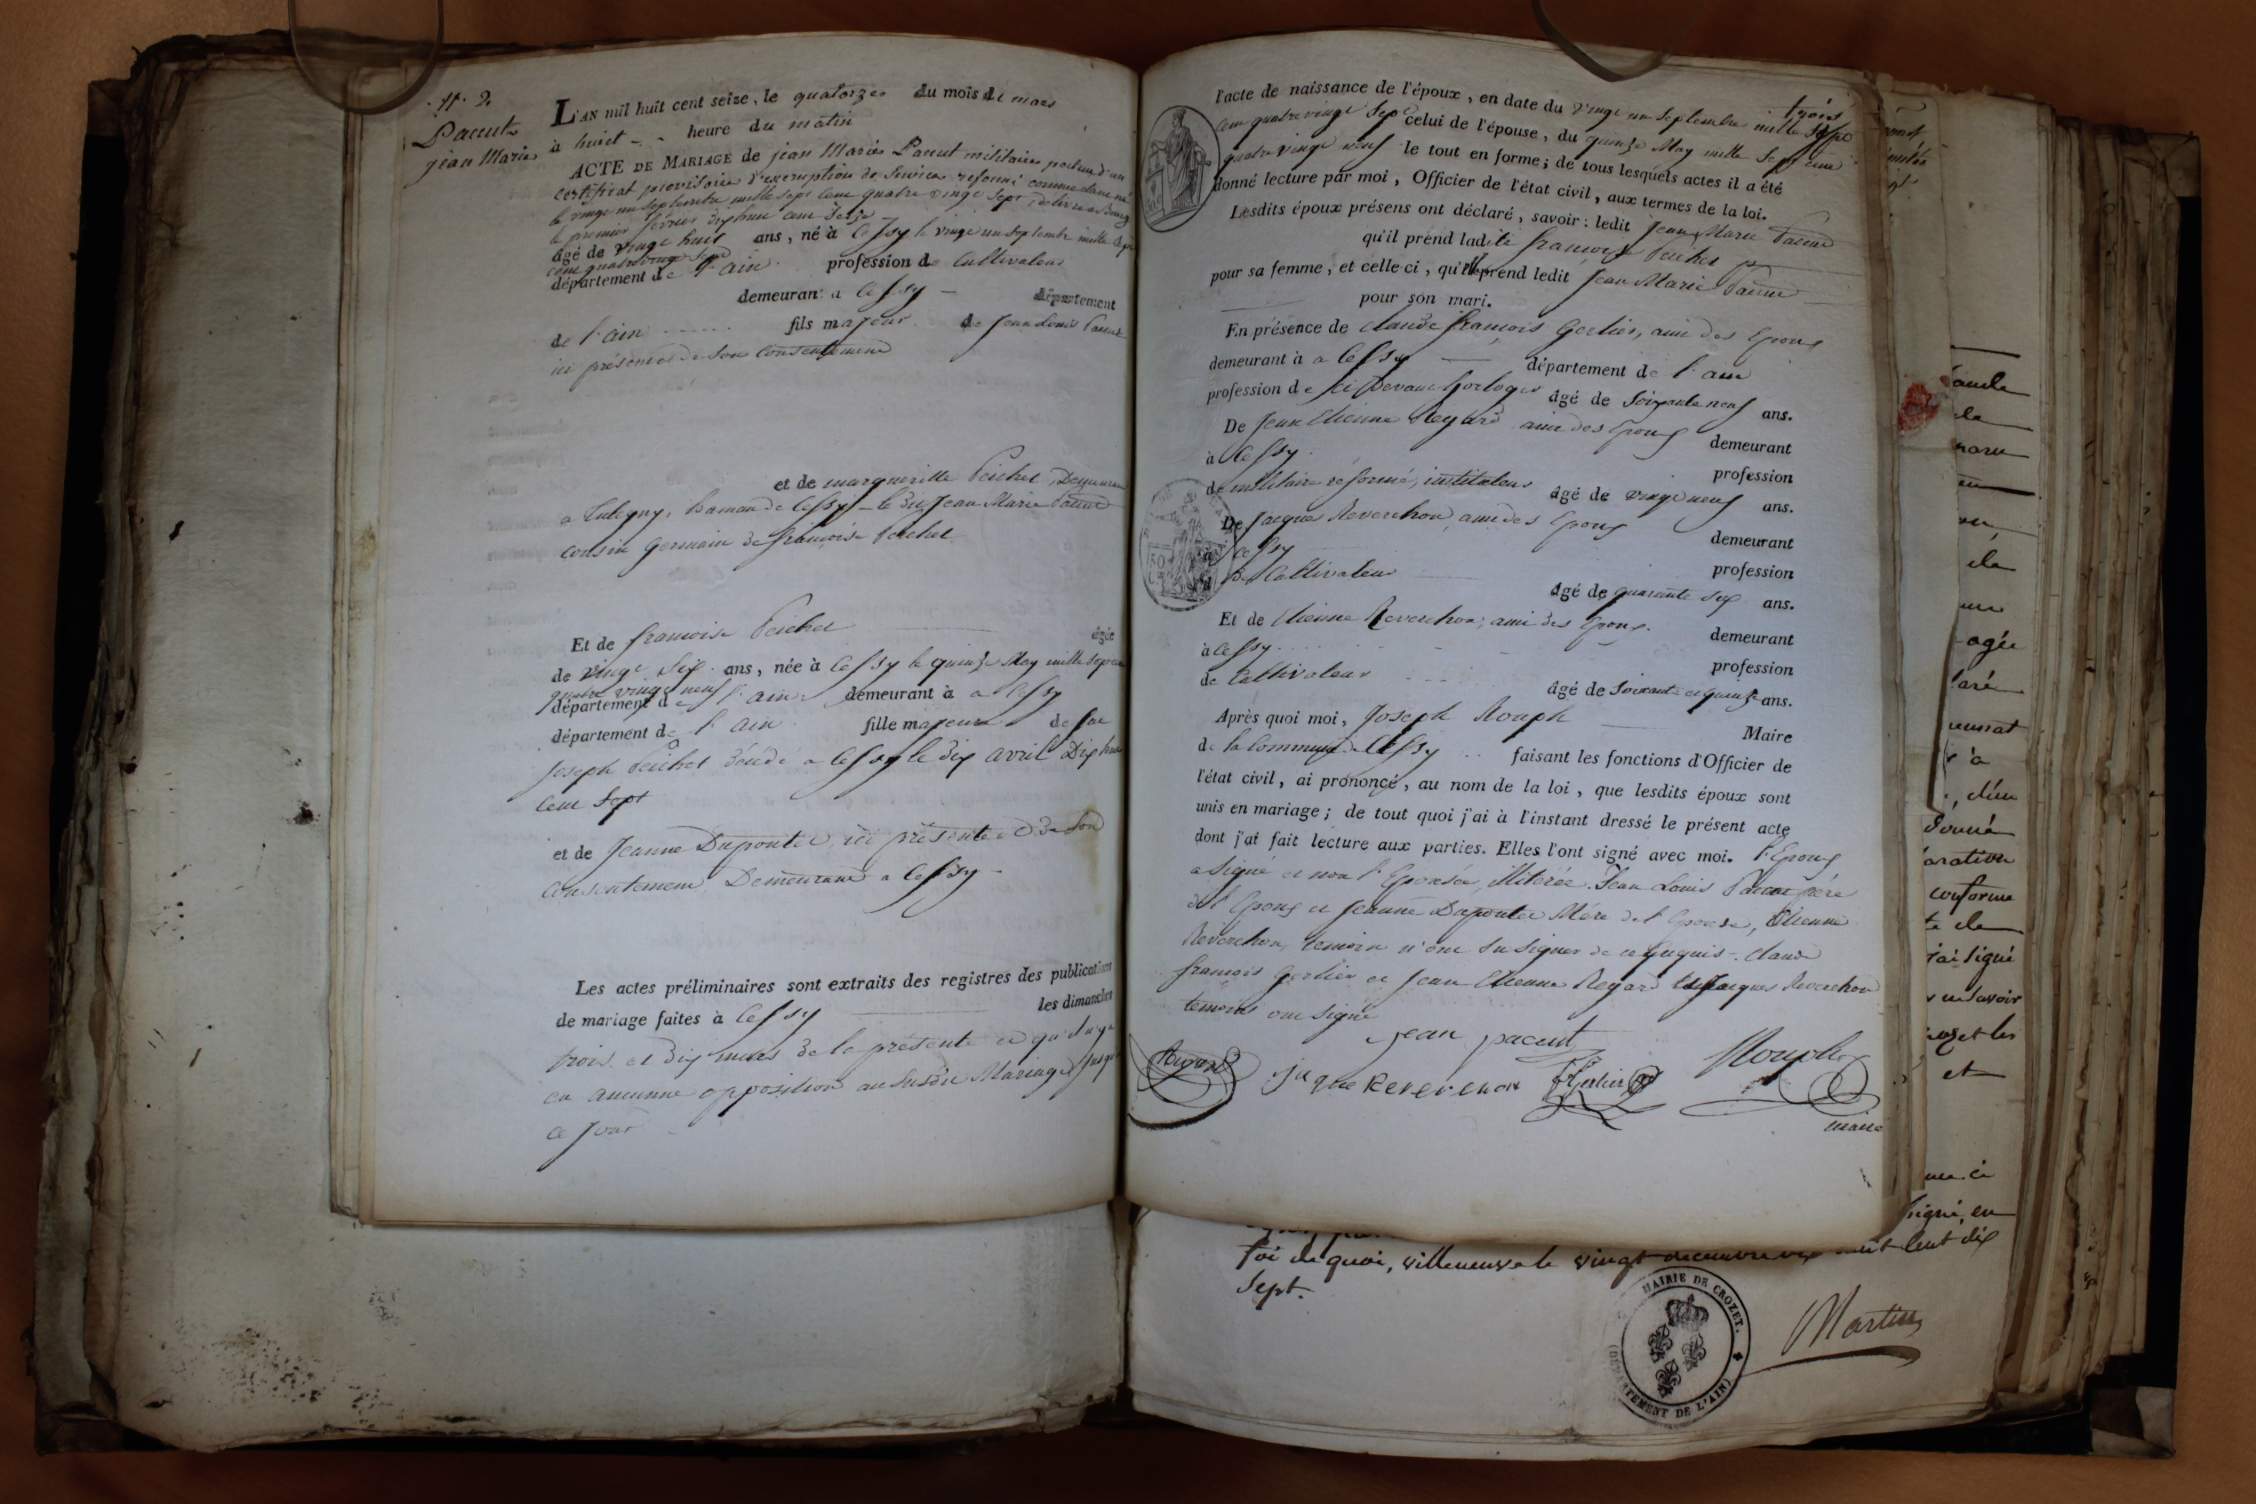 N° 2
Pacut
jean Marie
L'AN mil huit cent seize, le quatorze du mois de mars
à huit heure du matin
ACTE DE MARIAGE de jean Marie Pacut militaire porteur d'un
certificat provisoire d'exemption de service reformé comme étant né
le vingt un septembre mille sept cent quatre vingt sept, délivré à Bourg
le premier février dix huit cent seize
âgé de vingt huit ans, né à Cessy le vingt un septembre mille sept
cent quatre vingt sept
département de l'ain profession de Cultivateur
demeurant à Cessy département
de l'ain fils majeur de Jean Louis Pacut
ici présent et de son consentement
et de margueritte Peichet, Demeurant
a hameau de Cessy le dit Jean Marie Pacut
cousin germain de françoise Peichet
Et de françoise Peichet âgée
de vingt six ans, née à Cessy le quinze May mille sept cent
quatre vingt neuf
département de l'ain demeurant à a Cessy
département de l'ain fille majeure de feu
Joseph Peichet décédé a Cessy le dix avril Dix huit
cent sept
et de Jeanne Duponter ici présente et de son
consentement Demeurant a Cessy
Les actes préliminaires sont extraits des registres des publications
de mariage faites à Cessy les dimanches
trois et dix mars de la présente et qu'il n'y a
eu aucunne opposition au susdit Mariage jusqu'a
ce jour
l'acte de naissance de l'époux, en date du vingt un septembre mille sept
trois
cent quatre vingt sept celui de l'épouse, du quinze May mille sept cent
quatre vingt neuf le tout en forme; de tous lesquels actes il a été
donné lecture par moi, Officier de l'état civil, aux termes de la loi.
Lesdits époux présens ont déclaré, savoir: ledit Jean Marie Pacut
qu'il prend ladite françoise Peichet
pour sa femme, et celle ci, qu'elle prend ledit Jean Marie Pacut
pour son mari.
En présence de claude françois Gerlier, ami des Epoux
demeurant à a Cessy département de l'ain
profession de ci Devant horloger âgé de soixante neuf ans.
De Jean Etienne Regard ami des Epoux demeurant
à Cessy profession
de militaire réformé, instituteur âgé de vingt neuf ans.
De Jacques Reverchon ami des Epoux demeurant
Cessy profession
de Cultivateur âgé de quarante six ans.
Et de Etienne Reverchon, ami des Epoux. demeurant
à Cessy profession
de Cultivateur âgé de soixante et quinze ans.
Après quoi moi, Joseph Rouph Maire
de la Commune de Cessy faisant les fonctions d'Officier de
l'état civil, ai prononcé, au nom de la loi, que lesdits époux sont
unis en mariage; de tout quoi j'ai à l'instant dressé le présent acte
dont j'ai fait lecture aux parties. Elles l'ont signé avec moi. l'Epoux
a signé et non l'Epouse illiterée. Jean Louis Pacut père
de l'Epoux et Jeanne Duponter Mère de l'Epouse, Etienne
Reverchon, temoin n'ont su signer de ce enquis. Claude
françois Gerlier et Jean Etienne Regard et Jacques Reverchon
temoins ont signé
jean pacut
Regard
jaque Reverchon
Gerlier
Rouph
maire
foi de quoi, villeneuve le vingt decembre mil huit cent dix
sept.
MAIRIE DE CROZET.
(DÉPARTEMENT DE L'AIN)
Martin
agée
à
donné
aration
conforme
te de
j'ai signé
savoir
et les
et
signé, en